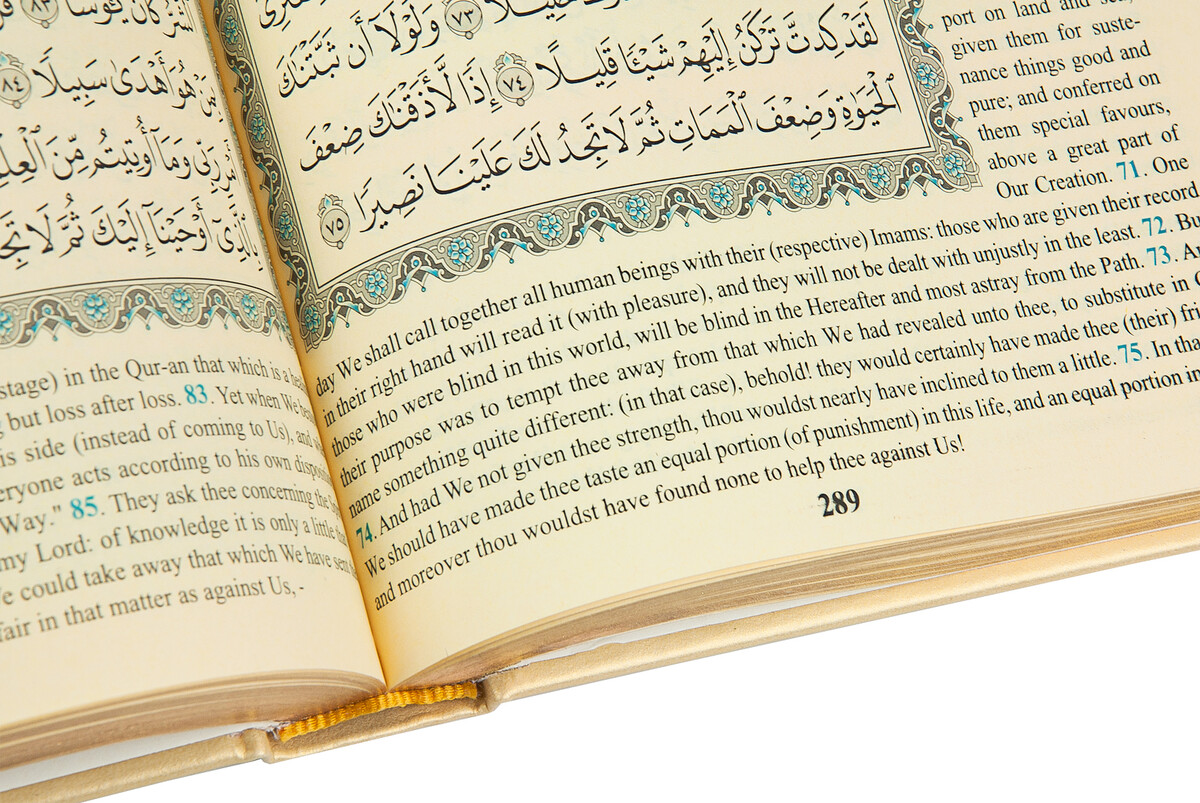 وَلَوْلَآ أَن ثَبَّتْنَٰكَ ٧٣
لَقَدْ كِدتَّ تَرْكَنُ إِلَيْهِمْ شَيْـًٔا قَلِيلًا ٧٤ إِذًا لَّأَذَقْنَٰكَ ضِعْفَ
ٱلْحَيَوٰةِ وَضِعْفَ ٱلْمَمَاتِ ثُمَّ لَا تَجِدُ لَكَ عَلَيْنَا نَصِيرًا ٧٥
port on land and
given them for suste-
nance things good and
pure; and conferred on
them special favours,
above a great part of
Our Creation. 71. One
day We shall call together all human beings with their (respective) Imams: those who are given their record
in their right hand will read it (with pleasure), and they will not be dealt with unjustly in the least. 72. Bu
those who were blind in this world, will be blind in the Hereafter and most astray from the Path. 73. A
their purpose was to tempt thee away from that which We had revealed unto thee, to substitute in
name something quite different: (in that case), behold! they would certainly have made thee (their) fri
74. And had We not given thee strength, thou wouldst nearly have inclined to them a little. 75. In tha
We should have made thee taste an equal portion (of punishment) in this life, and an equal portion in
and moreover thou wouldst have found none to help thee against Us!
289
كَانَ يَـُٔوسًا ٨٣
هُوَ أَهْدَىٰ سَبِيلًا ٨٤
رَبِّى وَمَآ أُوتِيتُم مِّنَ
أَوْحَيْنَآ إِلَيْكَ ثُمَّ لَا
stage) in the Qur-an that which is a
but loss after loss. 83. Yet when We
is side (instead of coming to Us), and
eryone acts according to his own dispo
Way." 85. They ask thee concerning the
my Lord: of knowledge it is only a little
e could take away that which We have sent
fair in that matter as against Us,-